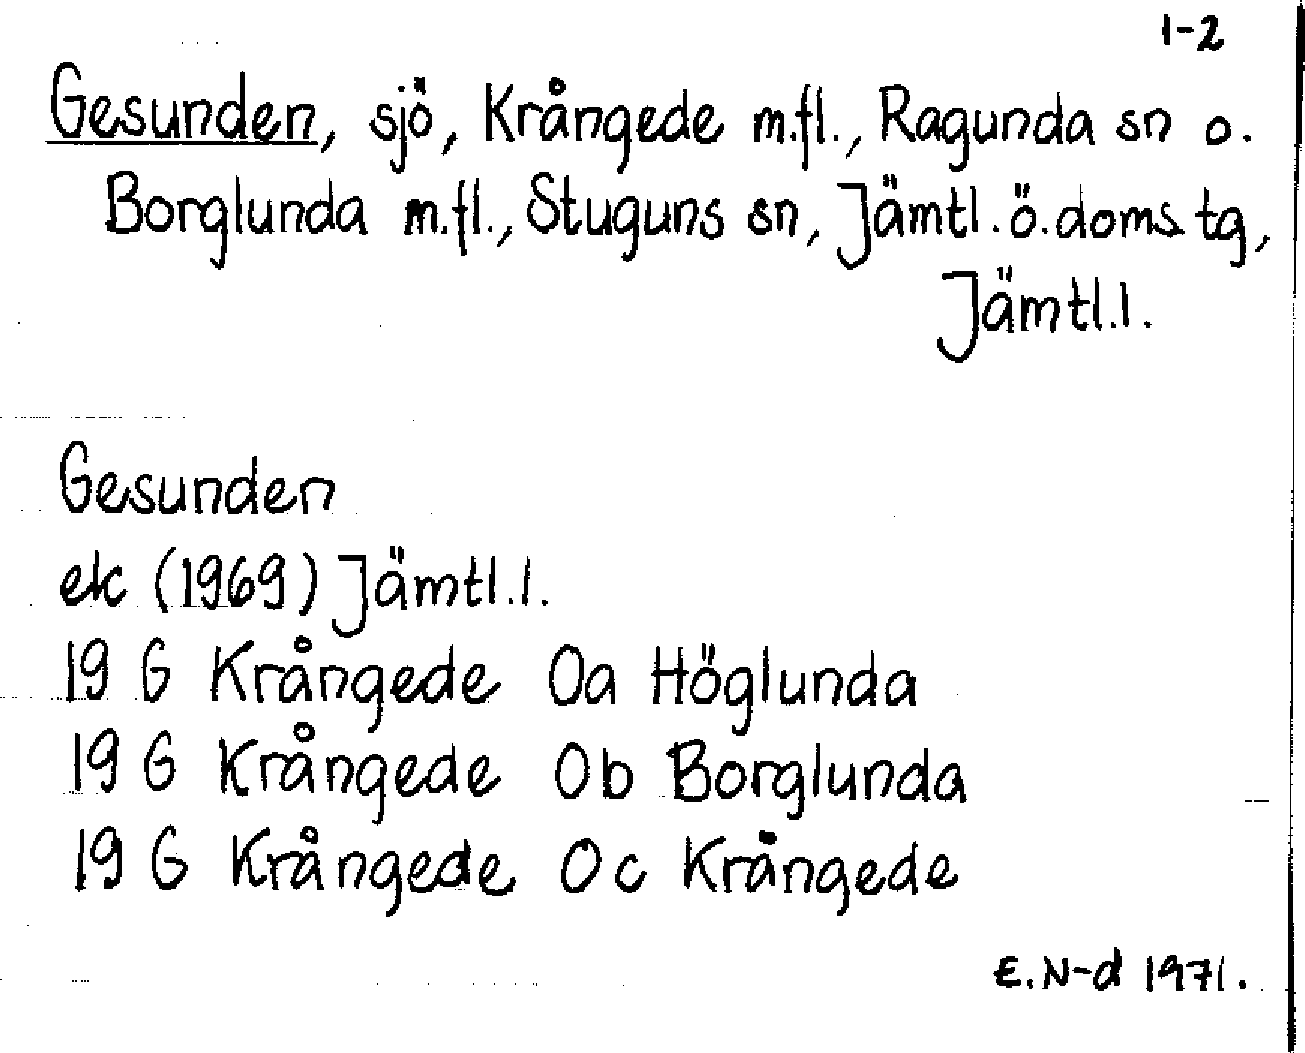 1-2
Gesunden, sjö, Krångede m.fl., Ragunda sn o.
Borglunda m.fl., Stuguns sn, Jämtl.ö.doms.tg,
Jämtl.l.
Gesunden
ek (1969) Jämtl.l.
19 G Krångede Oa Höglunda
19 G Krångede Ob Borglunda
19 G Krångede Oc Krångede
E.N-d 1971.